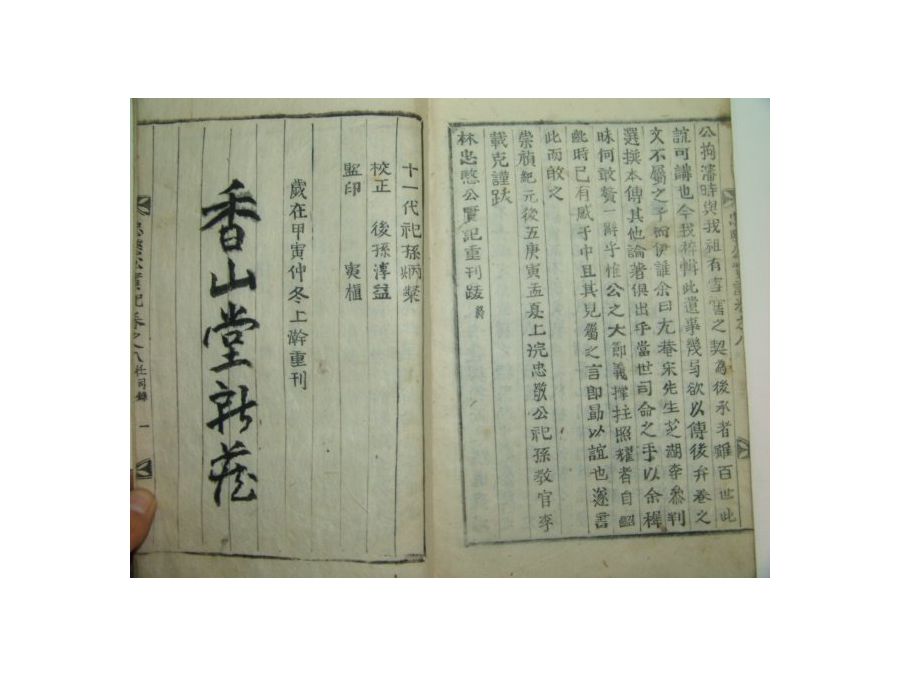 公拘瀋時與我祖有雪窖之契為後承者雖百世此
誼可講也今我裒輯此遺事幾與欲以傳後弁卷之
文不屬之子而伊誰余曰尤菴宋先生芝湖李參判
選撰本傳其他論著俱出乎當世司命之手以余稚
昧何敢贅一辭乎惟公之大節義撑拄照耀者自
此時已有感于中且其見屬之言即勗以誼也遂書
此而敢之
崇禎紀元後五庚寅孟夏上浣忠敬公祀孫教官李
載克謹跋
林忠愍公實記重刊跋
十一代祀孫炳榮
校正 後孫淳益
監印 寅植
歲在甲寅仲冬上澣重刊
香山堂新藏
忠愍公實記卷之八
一